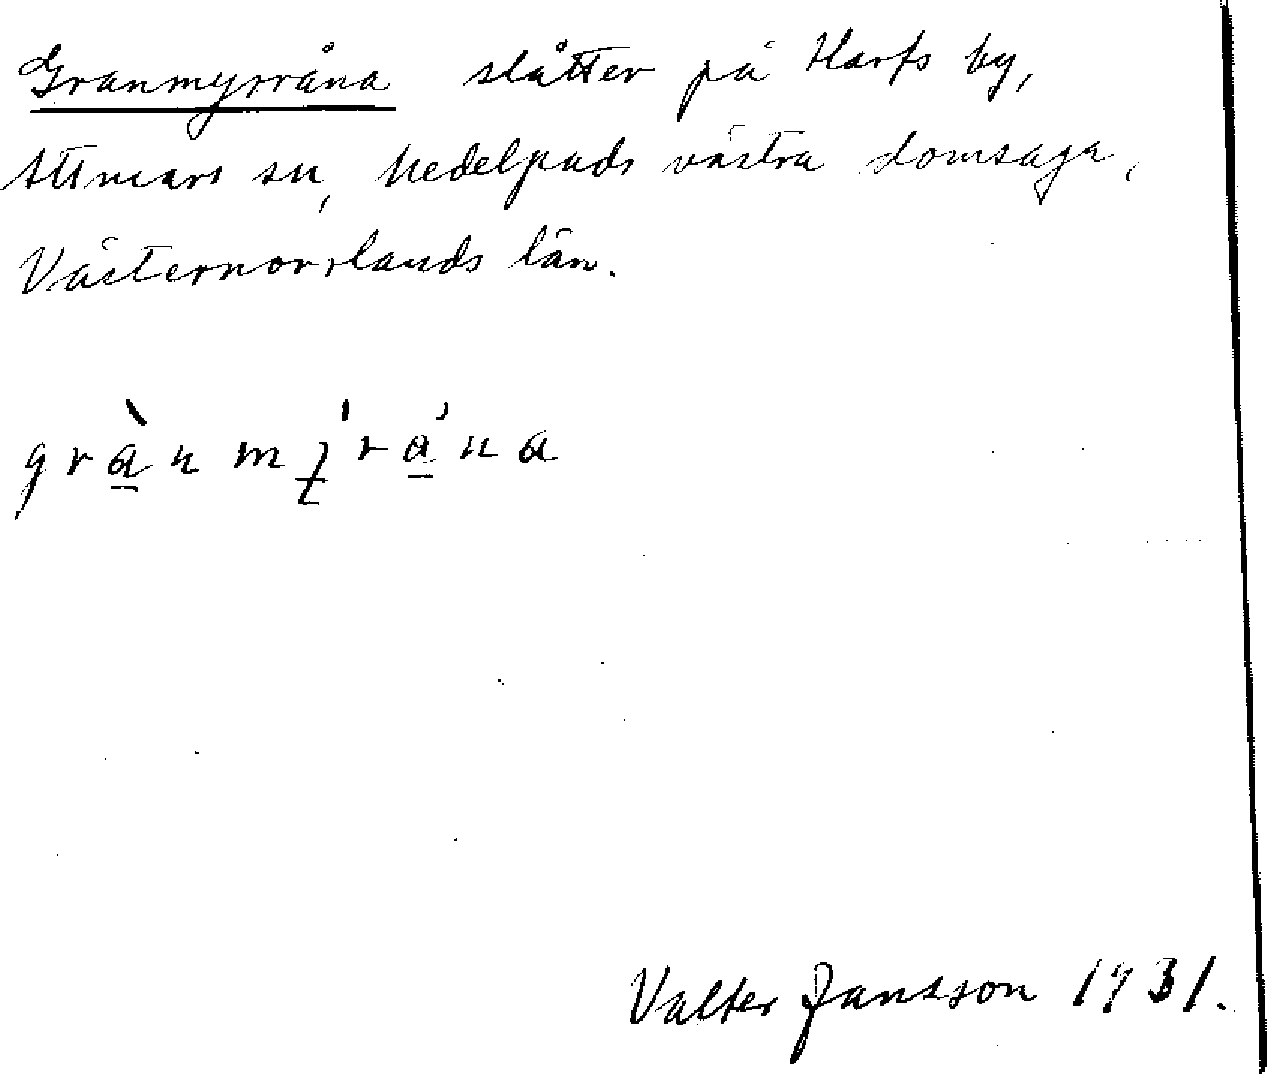 Granmyrråna slåtter på Harfs by,
Attmars sn, Medelpads västra domsaga,
Västernorrlands län.
Valter Jansson 1931.